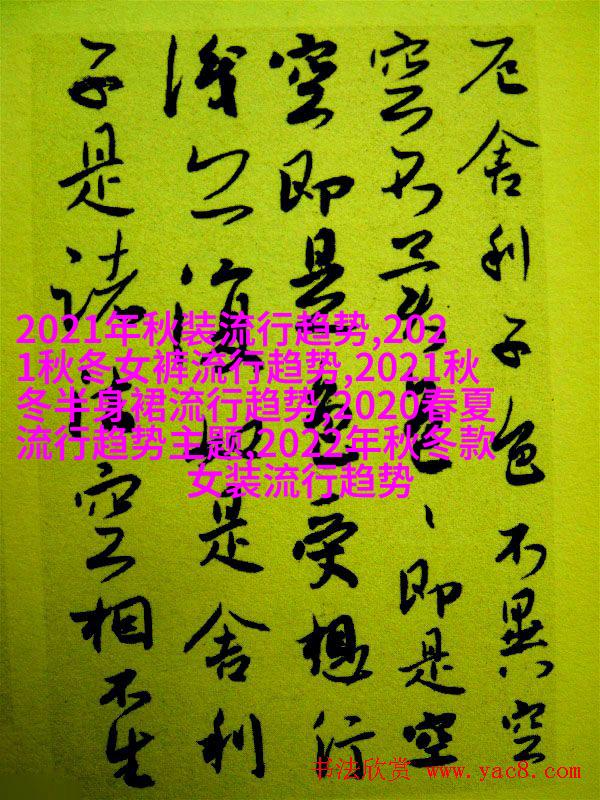 厄舍利子色不異空
空不異色、即是空
空即是色受想行
識亦復如是舍利
子是諸法空相不生
2021年秋装流行趋势,202
1秋冬女裤流行趋势,2021秋
冬半身裙流行趋势,2020春夏
流行趋势主题,2022年秋冬款
女装流行趋势
书法欣赏 www.yac8.com